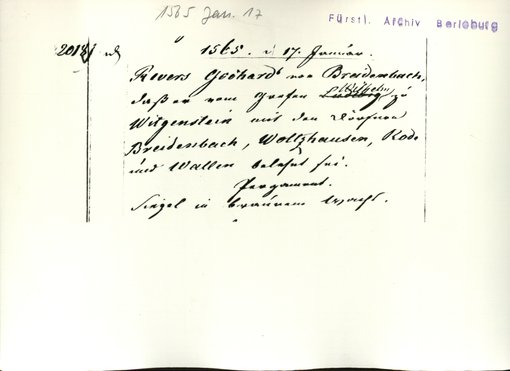 1565 Jan. 17
Fürstl. Archiv Berleburg
1565. d 17. Januar.
Revers Gerhards von Breidenbach,
daß er vom Grafen Ludwig Wilhelm zu
Witgenstein mit den Dörfern
Breidenbach, Woltzhausen, Rode
und Wallen belehnt sei.
Pergament.
Siegel in braunem Wachs.